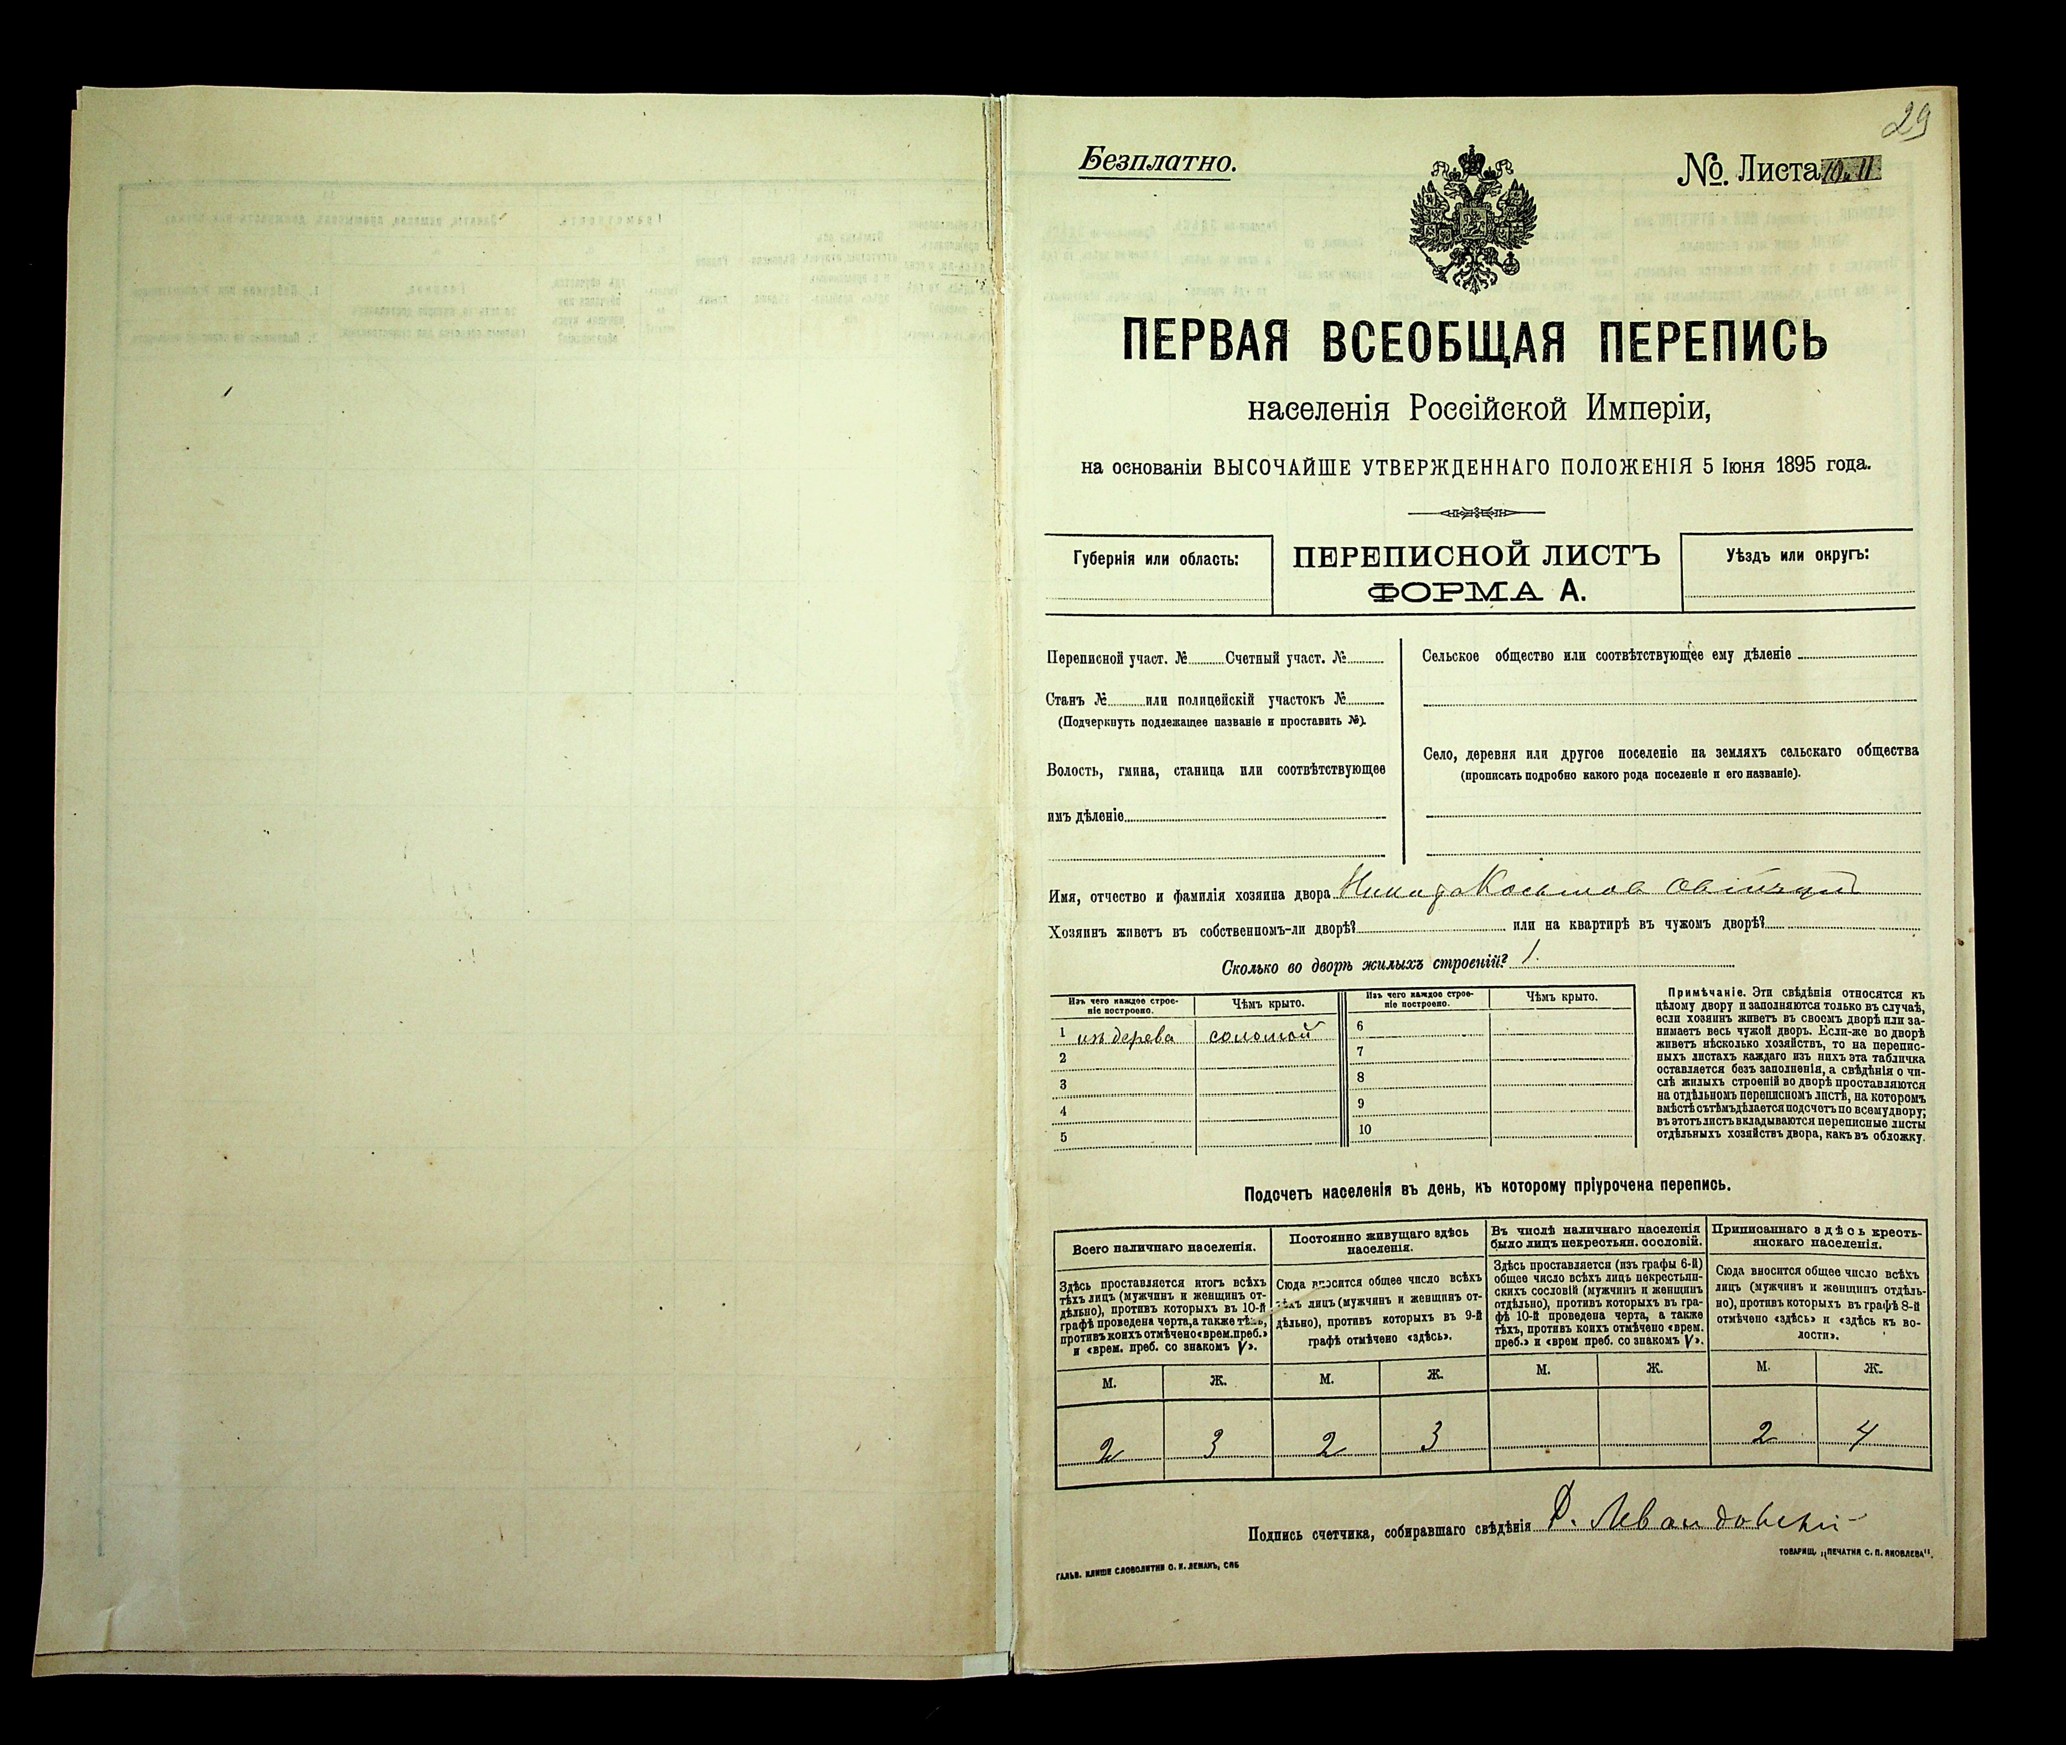 29
Безплатно.
№. Листа 10. 11
ПЕРВАЯ ВСЕОБЩАЯ ПЕРЕПИСЬ
населенія Россійской Имперіи,
на основаніи ВЫСОЧАЙШЕ УТВЕРЖДЕННАГО ПОЛОЖЕНІЯ 5 Іюня 1895 года.
Губернія или область:
ПЕРЕПИСНОЙ ЛИСТЪ
ФОРМА А.
Уѣздъ или округъ:
Переписной участ. № Счетный участ. №
Станъ № или полицейскій участокъ №
(Подчеркнуть подлежащее названіе и проставить №).
Волость, гмина, станица или соотвѣтствующее
имъ дѣленіе
Сельское общество или соотвѣтствующее ему дѣленіе
Село, деревня или другое поселеніе на земляхъ сельскаго общества
(прописать подробно какого рода поселеніе и его названіе).
Имя, отчество и фамилія хозяина двора
Хозяинъ живетъ въ собственномъ-ли дворѣ? или на квартирѣ въ чужомъ дворѣ?
Сколько во дворѣ жилыхъ строеній? 1.
Изъ чего каждое строе-
ніе построено.
Чѣмъ крыто.
Изъ чего каждое строе-
ніе построено.
Чѣмъ крыто.
1 изъ дерева соломой 6
2 7
3 8
4 9
5 10
Примѣчаніе. Эти свѣдѣнія относятся къ
цѣлому двору и заполняются только въ случаѣ,
если хозяинъ живетъ въ своемъ дворѣ или за-
нимаетъ весь чужой дворъ. Если-же во дворѣ
живетъ нѣсколько хозяйствъ, то на перепис-
ныхъ листахъ каждаго изъ нихъ эта табличка
оставляется безъ заполненія, а свѣдѣнія о чи-
слѣ жилыхъ строеній во дворѣ проставляются
на отдѣльномъ переписномъ листѣ, на которомъ
вмѣстѣ съ тѣмъ дѣлается подсчетъ по всему двору;
въ этотъ листъ вкладываются переписные листы
отдѣльныхъ хозяйствъ двора, какъ въ обложку.
Подсчетъ населенія въ день, къ которому пріурочена перепись.
Всего наличнаго населенія.
Здѣсь проставляется итогъ всѣхъ
тѣхъ лицъ (мужчинъ и женщинъ от-
дѣльно), противъ которыхъ въ 10-й
графѣ проведена черта, а также тѣхъ,
противъ коихъ отмѣчено «врем. преб.»
и «врем. преб. со знакомъ V».
Постоянно живущаго здѣсь
населенія.
Сюда вносится общее число всѣхъ
тѣхъ лицъ (мужчинъ и женщинъ от-
дѣльно), противъ которыхъ въ 9-й
графѣ отмѣчено «здѣсь».
Въ числѣ наличнаго населенія
было лицъ некрестьян. сословій.
Здѣсь проставляется (изъ графы 6-й)
общее число всѣхъ лицъ некрестьян-
скихъ сословій (мужчинъ и женщинъ
отдѣльно), противъ которыхъ въ гра-
фѣ 10-й проведена черта, а также
тѣхъ, противъ коихъ отмѣчено «врем.
преб.» и «врем преб. со знакомъ V».
Приписаннаго здѣсь кресть-
янскаго населенія.
Сюда вносится общее число всѣхъ
лицъ (мужчинъ и женщинъ отдѣль-
но), противъ которыхъ въ графѣ 8-й
отмѣчено «здѣсь» и «здѣсь къ во-
лости».
М. Ж. М. Ж. М. Ж. М. Ж.
2 3 2 3 2 4
Подпись счетчика, собиравшаго свѣдѣнія Р. Левандовскій
ГАЛЬВ. КЛИШЕ СЛОВОЛИТНИ О. И. ЛЕМАНЪ, СПБ
ТОВАРИЩ. „ПЕЧАТНЯ С. П. ЯКОВЛЕВА“.